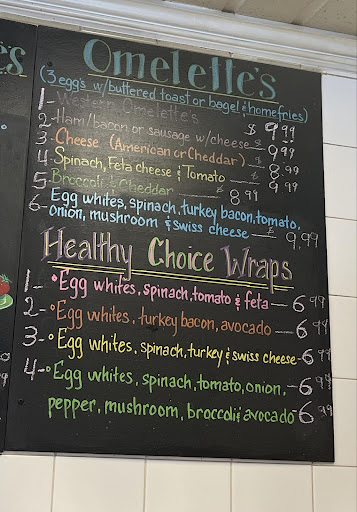 Omelette's
(3 egg's w/buttered toast or bagel & homefries)
1- Western Omelette's $9.99
2- Ham/bacon or sausage w/cheese $9.99
3- Cheese (American or Cheddar) $8.99
4- Spinach, Feta cheese & Tomato $9.99
5- Broccoli & Cheddar 8.99
6- Egg whites, spinach, turkey bacon, tomato,
onion, mushroom & swiss cheese $9.99
Healthy Choice Wraps
1- Egg whites, spinach, tomato & feta 6.99
2- Egg whites, turkey bacon, avocado 6.99
3- Egg whites, spinach, turkey & swiss cheese 6.99
4- Egg whites, spinach, tomato, onion, 6.99
pepper, mushroom, broccoli & avocado 6.99